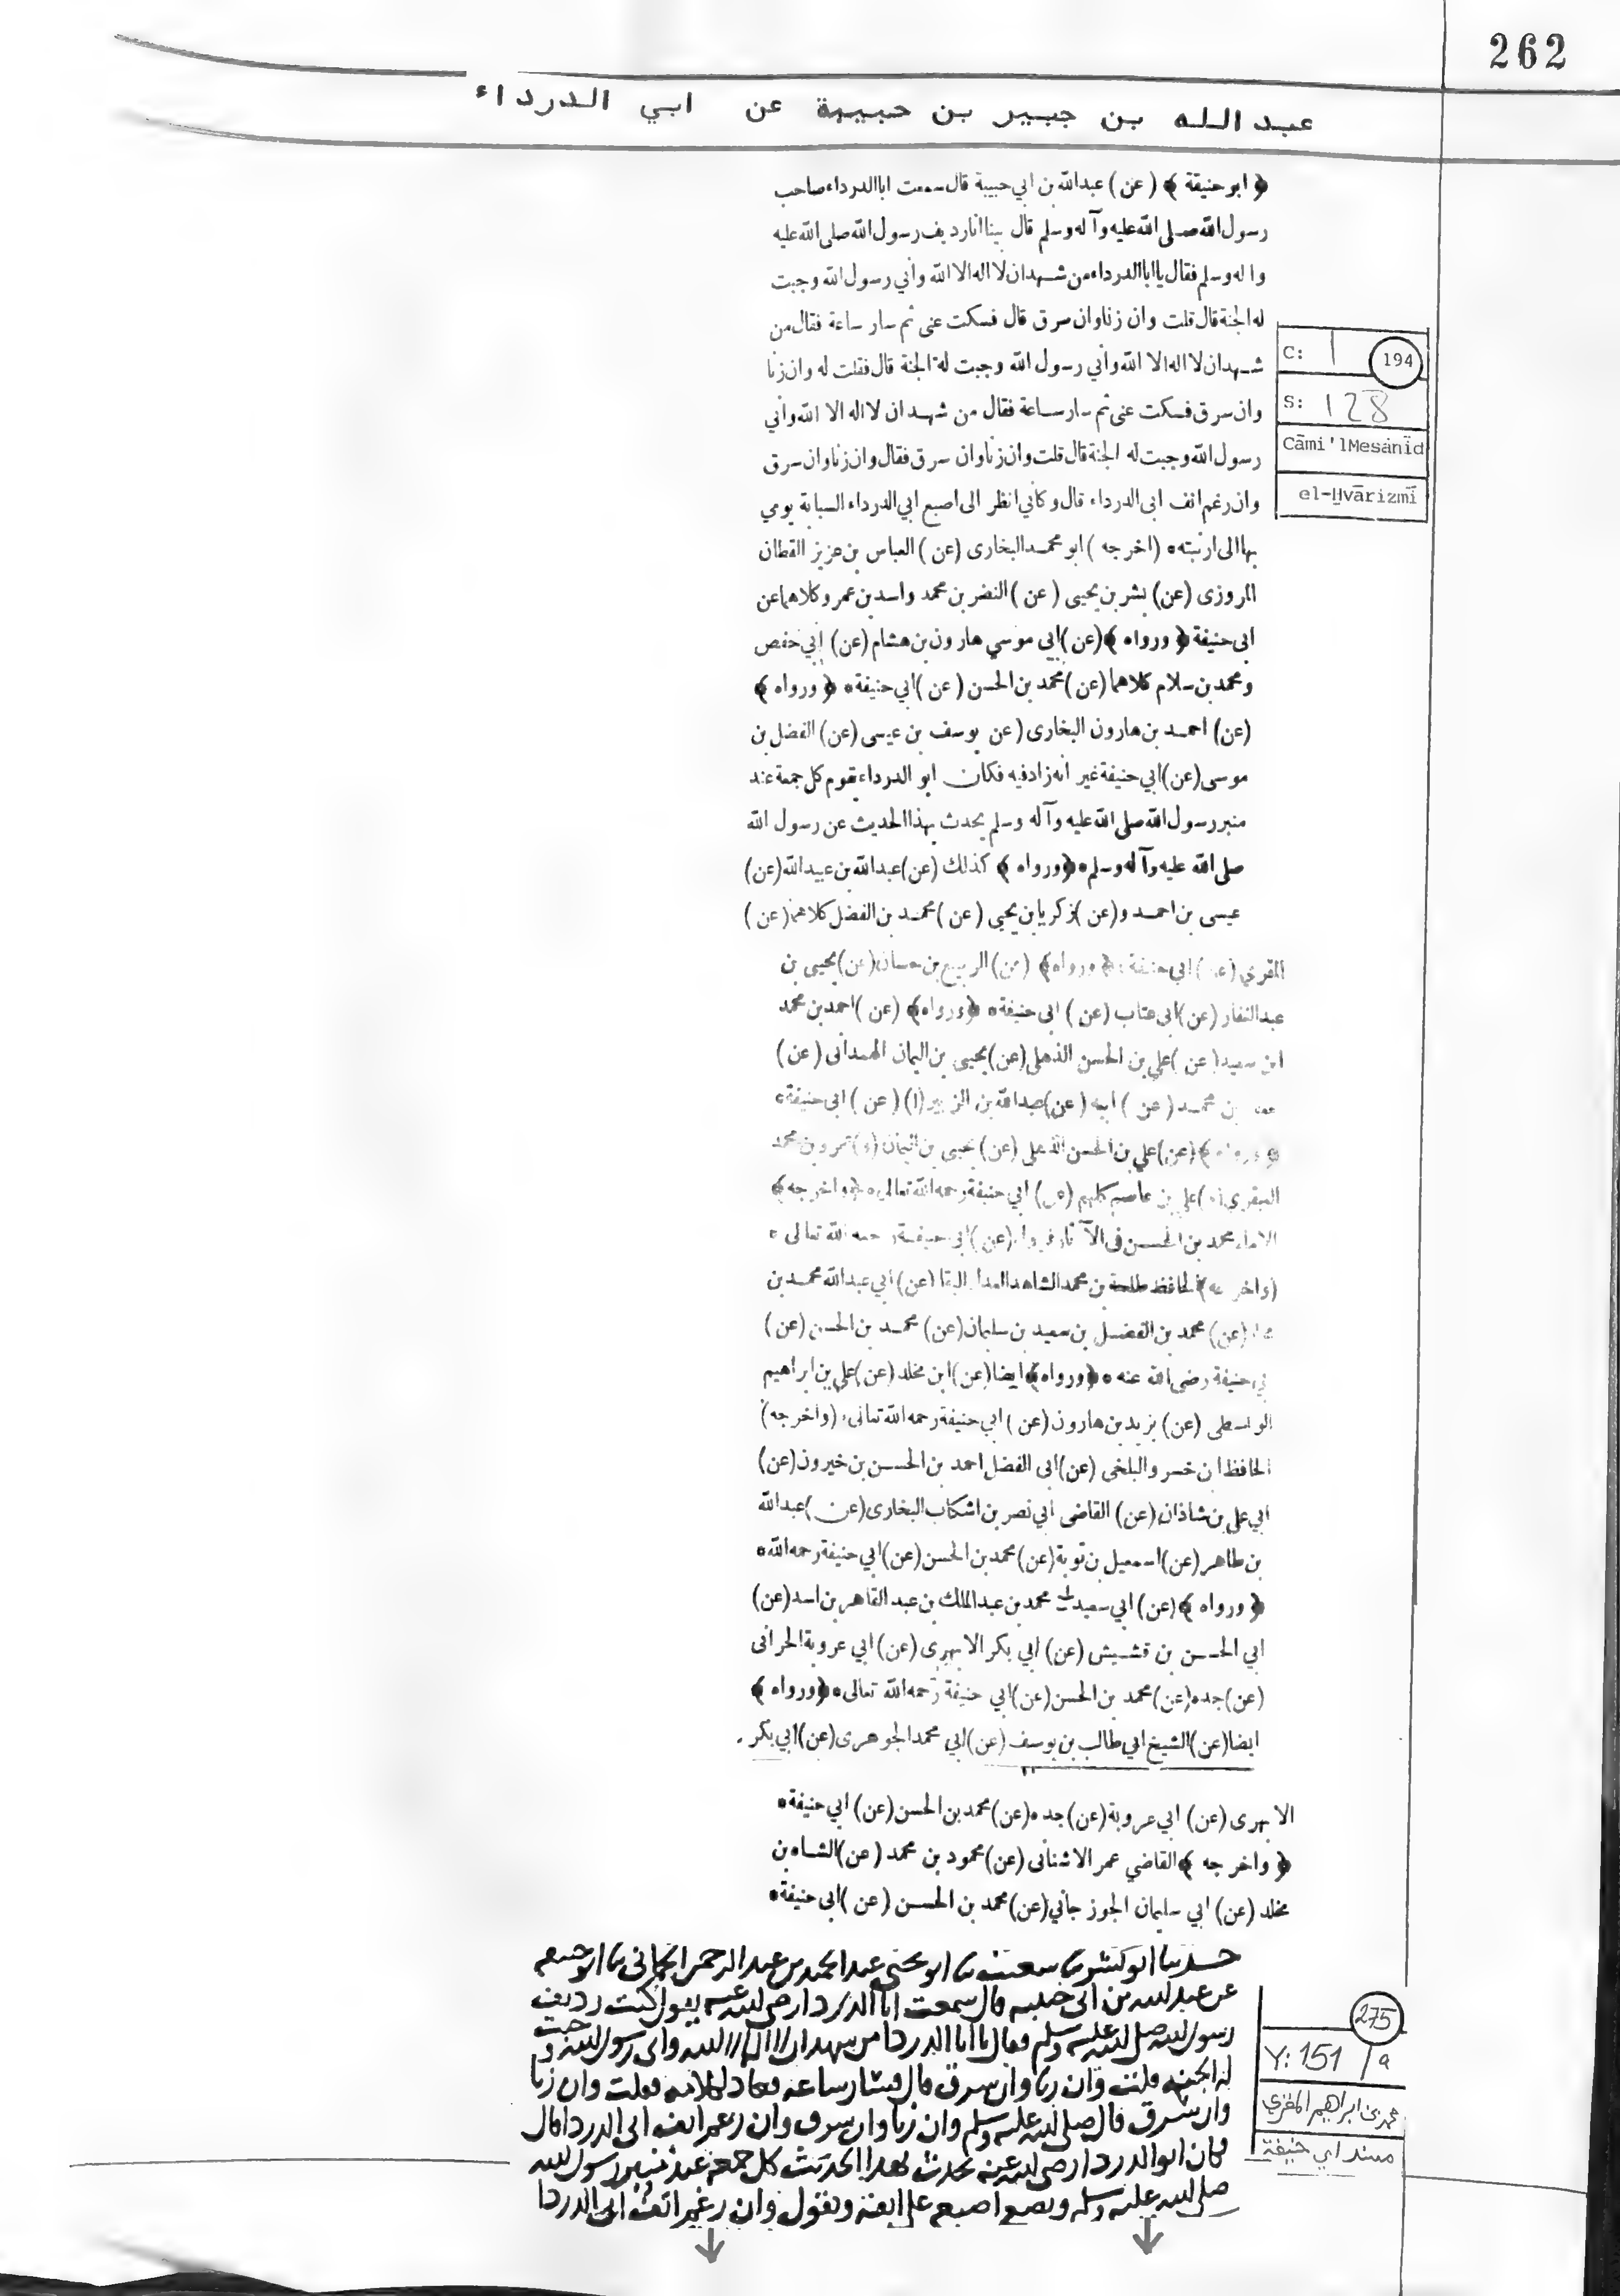 262
عبد الله بن جبير بن حبيبة عن ابي الدرداء
﴿ ابو حنيفة ﴾ (عن) عبدالله بن ابي حبيبة قال سمعت ابا الدرداء صاحب
رسول الله صلى الله عليه وآله وسلم قال بينا انا رديف رسول الله صلى الله عليه
وآله وسلم فقال يا ابا الدرداء من شهد ان لا اله الا الله وأني رسول الله وجبت
له الجنة قال قلت وان زنا وان سرق قال فسكت عني ثم سار ساعة فقال من
شهد ان لا اله الا الله وأني رسول الله وجبت له الجنة قال فقلت له وان زنا
وان سرق فسكت عني ثم سار ساعة فقال من شهد ان لا اله الا الله وأني
رسول الله وجبت له الجنة قال قلت وان زنا وان سرق فقال وان زنا وان سرق
وان رغم انف ابى الدرداء قال وكأني انظر الى اصبع ابي الدرداء السبابة يومي
بها الى ارنبته • (اخرجه) ابو محمد البخارى (عن) العباس بن عزيز القطان
المروزى (عن) بشر بن يحيى (عن) النضر بن محمد واسد بن عمرو كلاهما عن
ابى حنيفة ﴿ ورواه ﴾ (عن) ابي موسي هارون بن هشام (عن) ابي حفص
ومحمد بن سلام كلاهما (عن) محمد بن الحسن (عن) ابي حنيفة • ﴿ ورواه ﴾
(عن) احمد بن هارون البخارى (عن يوسف بن عيسى (عن) الفضل بن
موسى (عن) ابي حنيفة غير انه زاد فيه فكان ابو الدرداء يقوم كل جمعة عند
منبر رسول الله صلى الله عليه وآله وسلم يحدث بهذا الحديث عن رسول الله
صلى الله عليه وآله وسلم • ﴿ورواه ﴾ كذلك (عن) عبدالله بن عبيدالله (عن)
عيسى بن احمد و (عن) زكريا بن يحيى (عن) محمد بن الفضل كلاهما (عن)
المقري (عن) ابي حنيفة • ﴿ ورواه﴾ (عن) الربيع بن حسان (عن) يحيى بن
عبدالغفار (عن) ابى عتاب (عن) ابى حنيفة • ﴿ورواه﴾ (عن) احمد بن محمد
ابن سعيد (عن) علي بن الحسن الذهلي (عن) يحيى بن اليمان الهمدانى (عن)
بن محمد (عن) ابيه (عن) عبدالله بن الزبير (١) (عن) ابى حنيفة •
﴿ ورواه ﴾ (عن) علي بن الحسن الذهلى (عن) يحيى بن اليمان (و) عمرو بن محمد
العبقري (و) علي بن عاصم كلهم (عن) ابي حنيفة رحمه الله تعالى • ﴿واخرجه﴾
الامام محمد بن الحسن في الآثار فرواه (عن) ابي حنيفة رحمه الله تعالى •
(واخرجه) الحافظ طلحة بن محمد الشاهد العدل (عن) ابي عبدالله محمد بن
مخلد (عن) محمد بن الفضل بن سعيد بن سليمان (عن) محمد بن الحسن (عن)
ابي حنيفة رضى الله عنه • ﴿ورواه﴾ ايضا (عن) ابن مخلد (عن) علي بن ابراهيم
الواسطى (عن) يزيد بن هارون (عن) ابي حنيفة رحمه الله تعالى • (واخرجه)
الحافظ ابن خسرو البلخى (عن) ابى الفضل احمد بن الحسن بن خيرون (عن)
ابي علي بن شاذان (عن) القاضى ابي نصر بن اشكاب البخارى (عن) عبدالله
بن طاهر (عن) اسمعيل بن توبة (عن) محمد بن الحسن (عن) ابي حنيفة رحمه الله •
﴿ ورواه ﴾ (عن) ابي سعيد محمد بن عبد الملك بن عبد القاهر بن اسد (عن)
ابي الحسن بن قشيش (عن) ابي بكر الابهرى (عن) ابي عروبة الحرانى
(عن) جده (عن) محمد بن الحسن (عن) ابي حنيفة رحمه الله تعالى • ﴿ورواه ﴾
ايضا (عن) الشيخ ابي طالب بن يوسف (عن) ابي محمد الجوهرى (عن) ابي بكر
الابهرى (عن) ابي عروبة (عن) جده (عن) محمد بن الحسن (عن) ابي حنيفة •
﴿ واخرجه ﴾ القاضي عمر الاشنانى (عن) محمود بن محمد (عن) الشاه بن
مخلد (عن) ابي سليمان الجوزجاني (عن) محمد بن الحسن (عن) ابى حنيفة •
C: 1 194
S: 128
Cāmi'lMesānīd
el-Ḫvārizmī
حدثنا ابو يحيى عبد الحميد بن عبد الرحمن الحماني ثنا ابو حنيفه
عن عبد الله بن ابى حبيبه قال سمعت ابا الدردا رضى الله عنه يقول كنت رديف
رسول الله صلى الله عليه وسلم فقال يا ابا الدردا من شهد ان لا اله الا الله وانى رسول الله وجبت
له الجنه قلت وان زنا وان سرق قال فسار ساعه فعاد لكلامه فقلت وان زنا
وان سرق قال صلى الله عليه وسلم وان زنا وان سرق وان رغم انف ابى الدردا قال
فكان ابو الدردا رضى الله عنه يحدث بهذا الحديث كل جمعه عند منبر رسول الله
صلى الله عليه وسلم ويضع اصبعه على انفه ويقول وان رغم انف ابى الدردا
275
Y: 151/a
محمد بن ابراهيم المقري
مسند ابي حنيفة